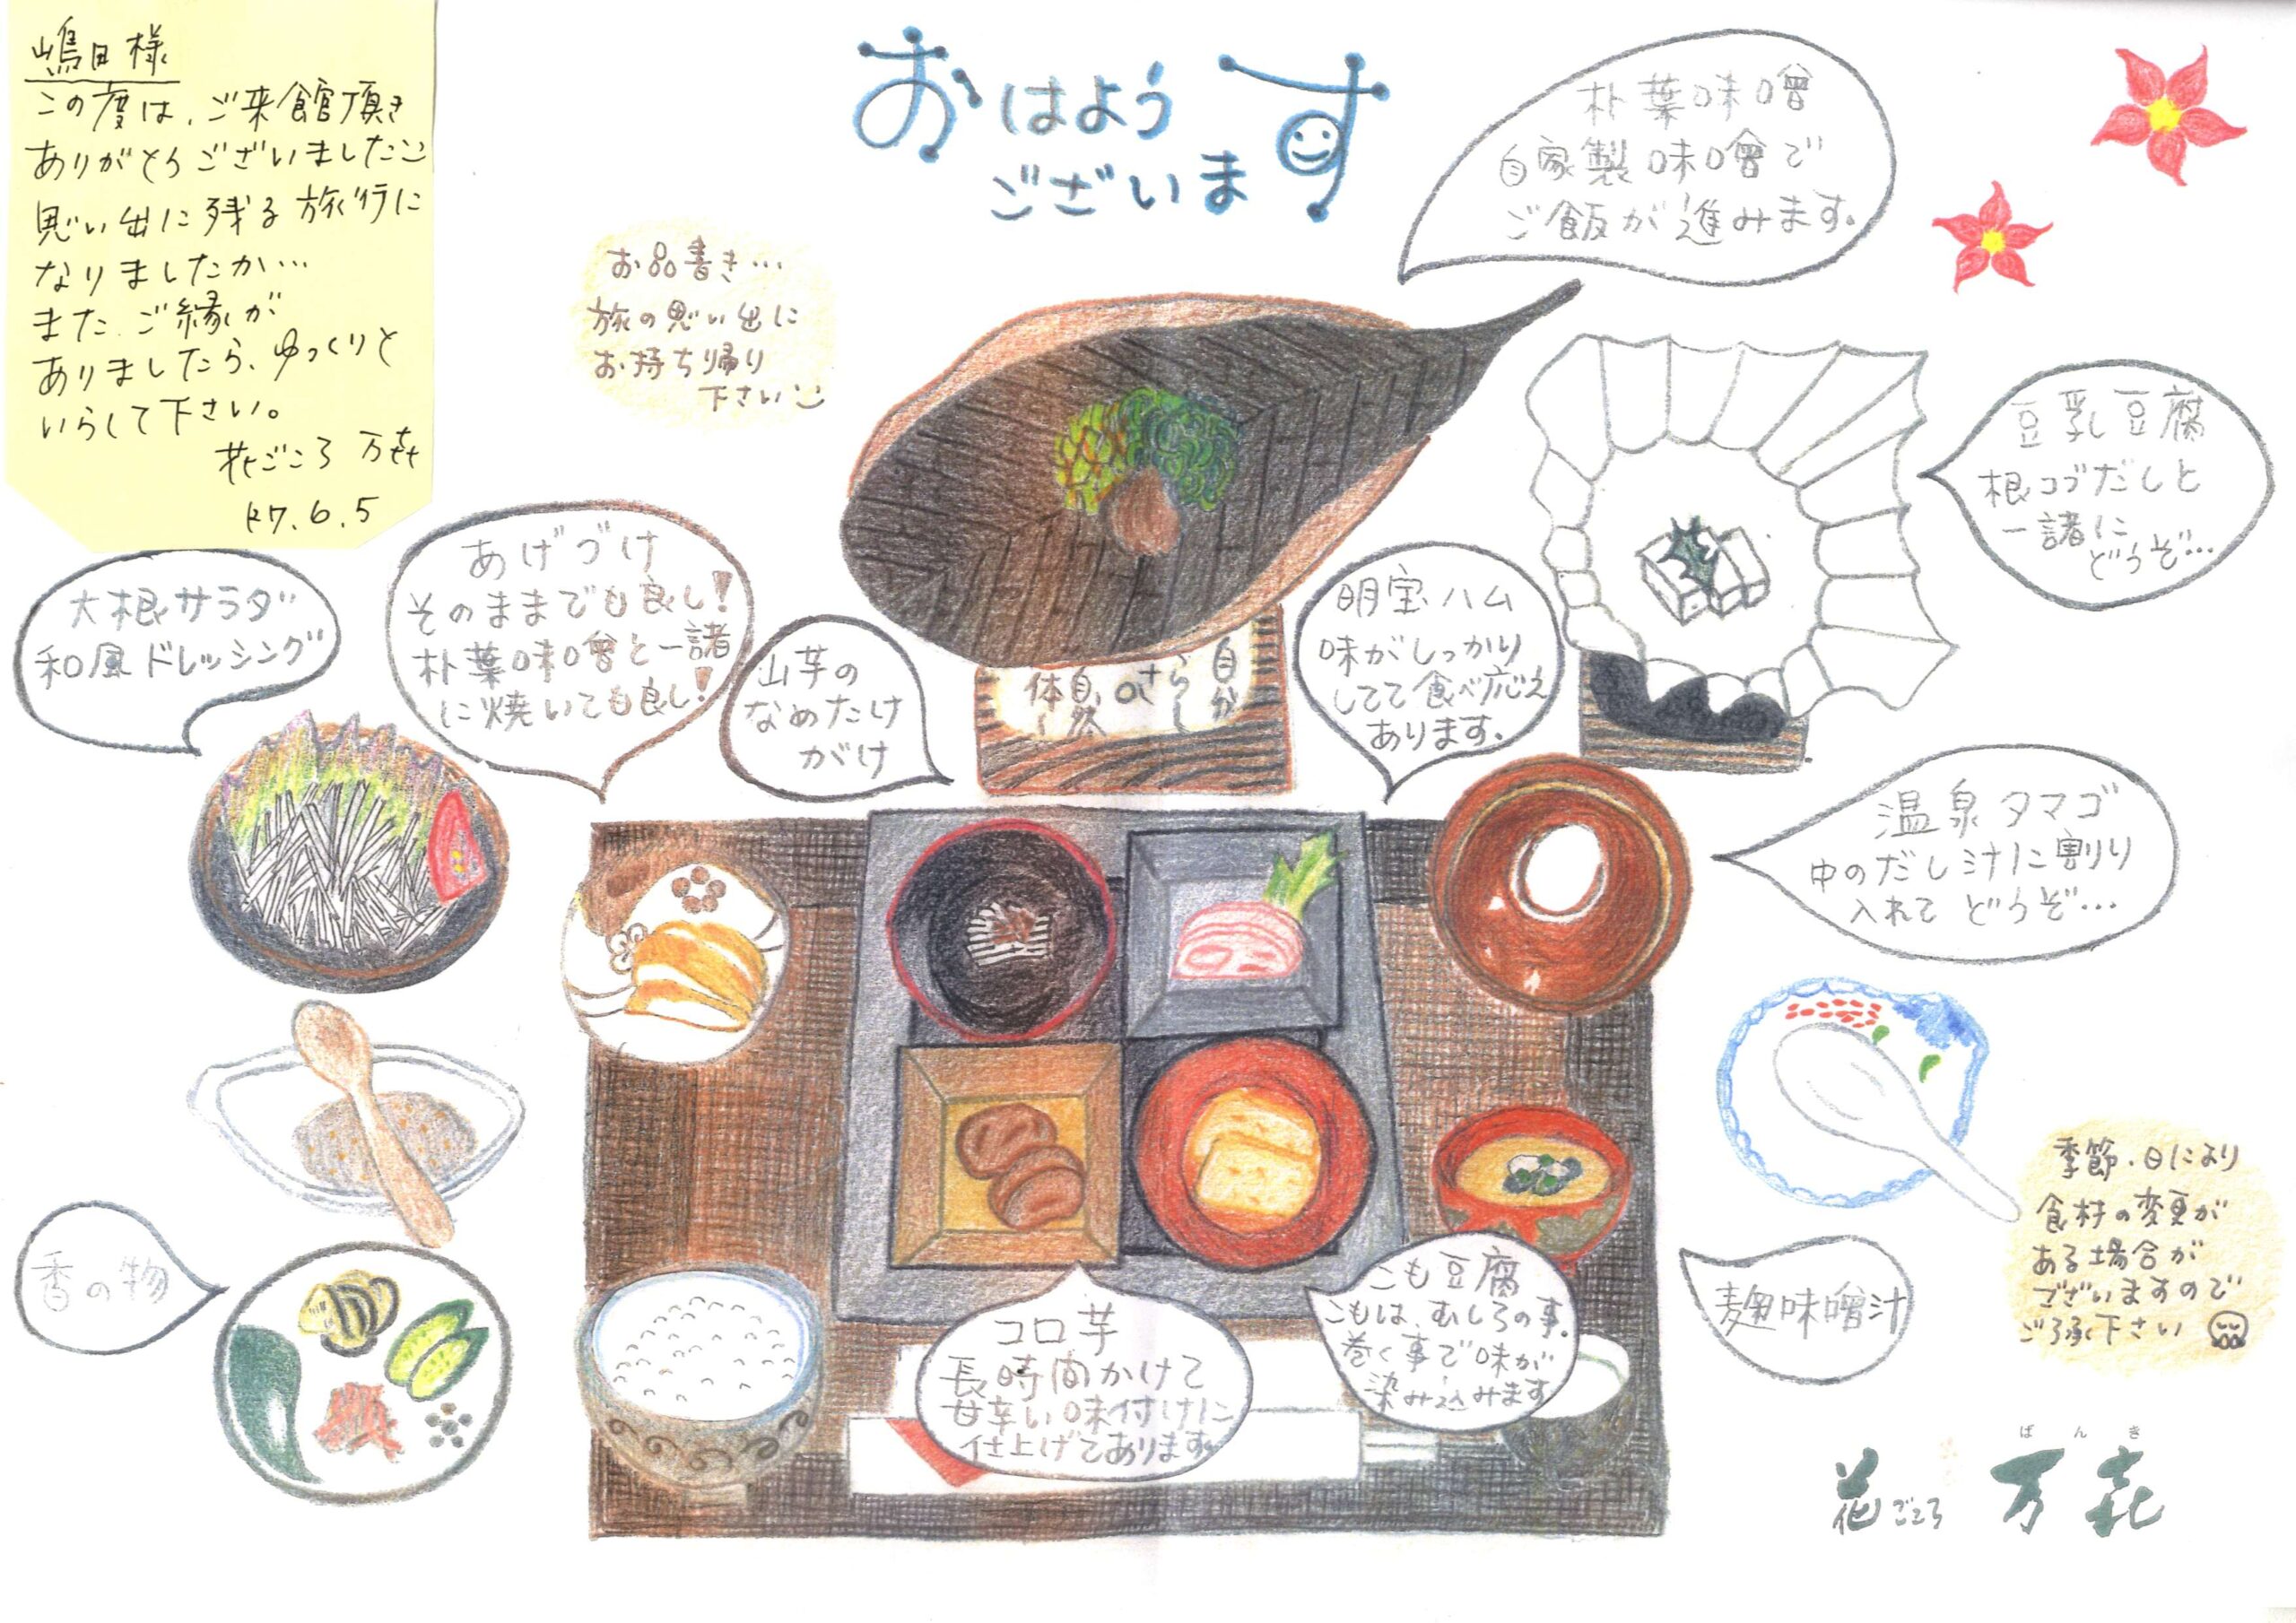 嶋田様
この度は、ご来館頂き
ありがとうございました
思い出に残る旅行に
なりましたか…
また、ご縁が
ありましたら、ゆっくりと
いらして下さい。
花ごころ 万㐂
R7.6.5
おはよう
ございます
お品書き…
旅の思い出に
お持ち帰り
下さい
朴葉味噌
自家製味噌で
ご飯が進みます。
豆乳豆腐
根コブだしと
一諸に
どうぞ…
大根サラダ
和風ドレッシング
あげづけ
そのままでも良し!
朴葉味噌と一諸
に焼いても良し!
山芋の
なめたけ
がけ
明宝ハム
味がしっかり
してて食べ応え
あります。
温泉タマゴ
中のだし汁に割り
入れて どうぞ…
香の物
コロ芋
長時間かけて
甘辛い味付けに
仕上げてあります
こも豆腐
こもは、むしろの事。
巻く事で味が
染み込みます
麹味噌汁
季節、日により
食材の変更が
ある場合が
ございますので
ご了承下さい
ばんき
花ごころ 万㐂